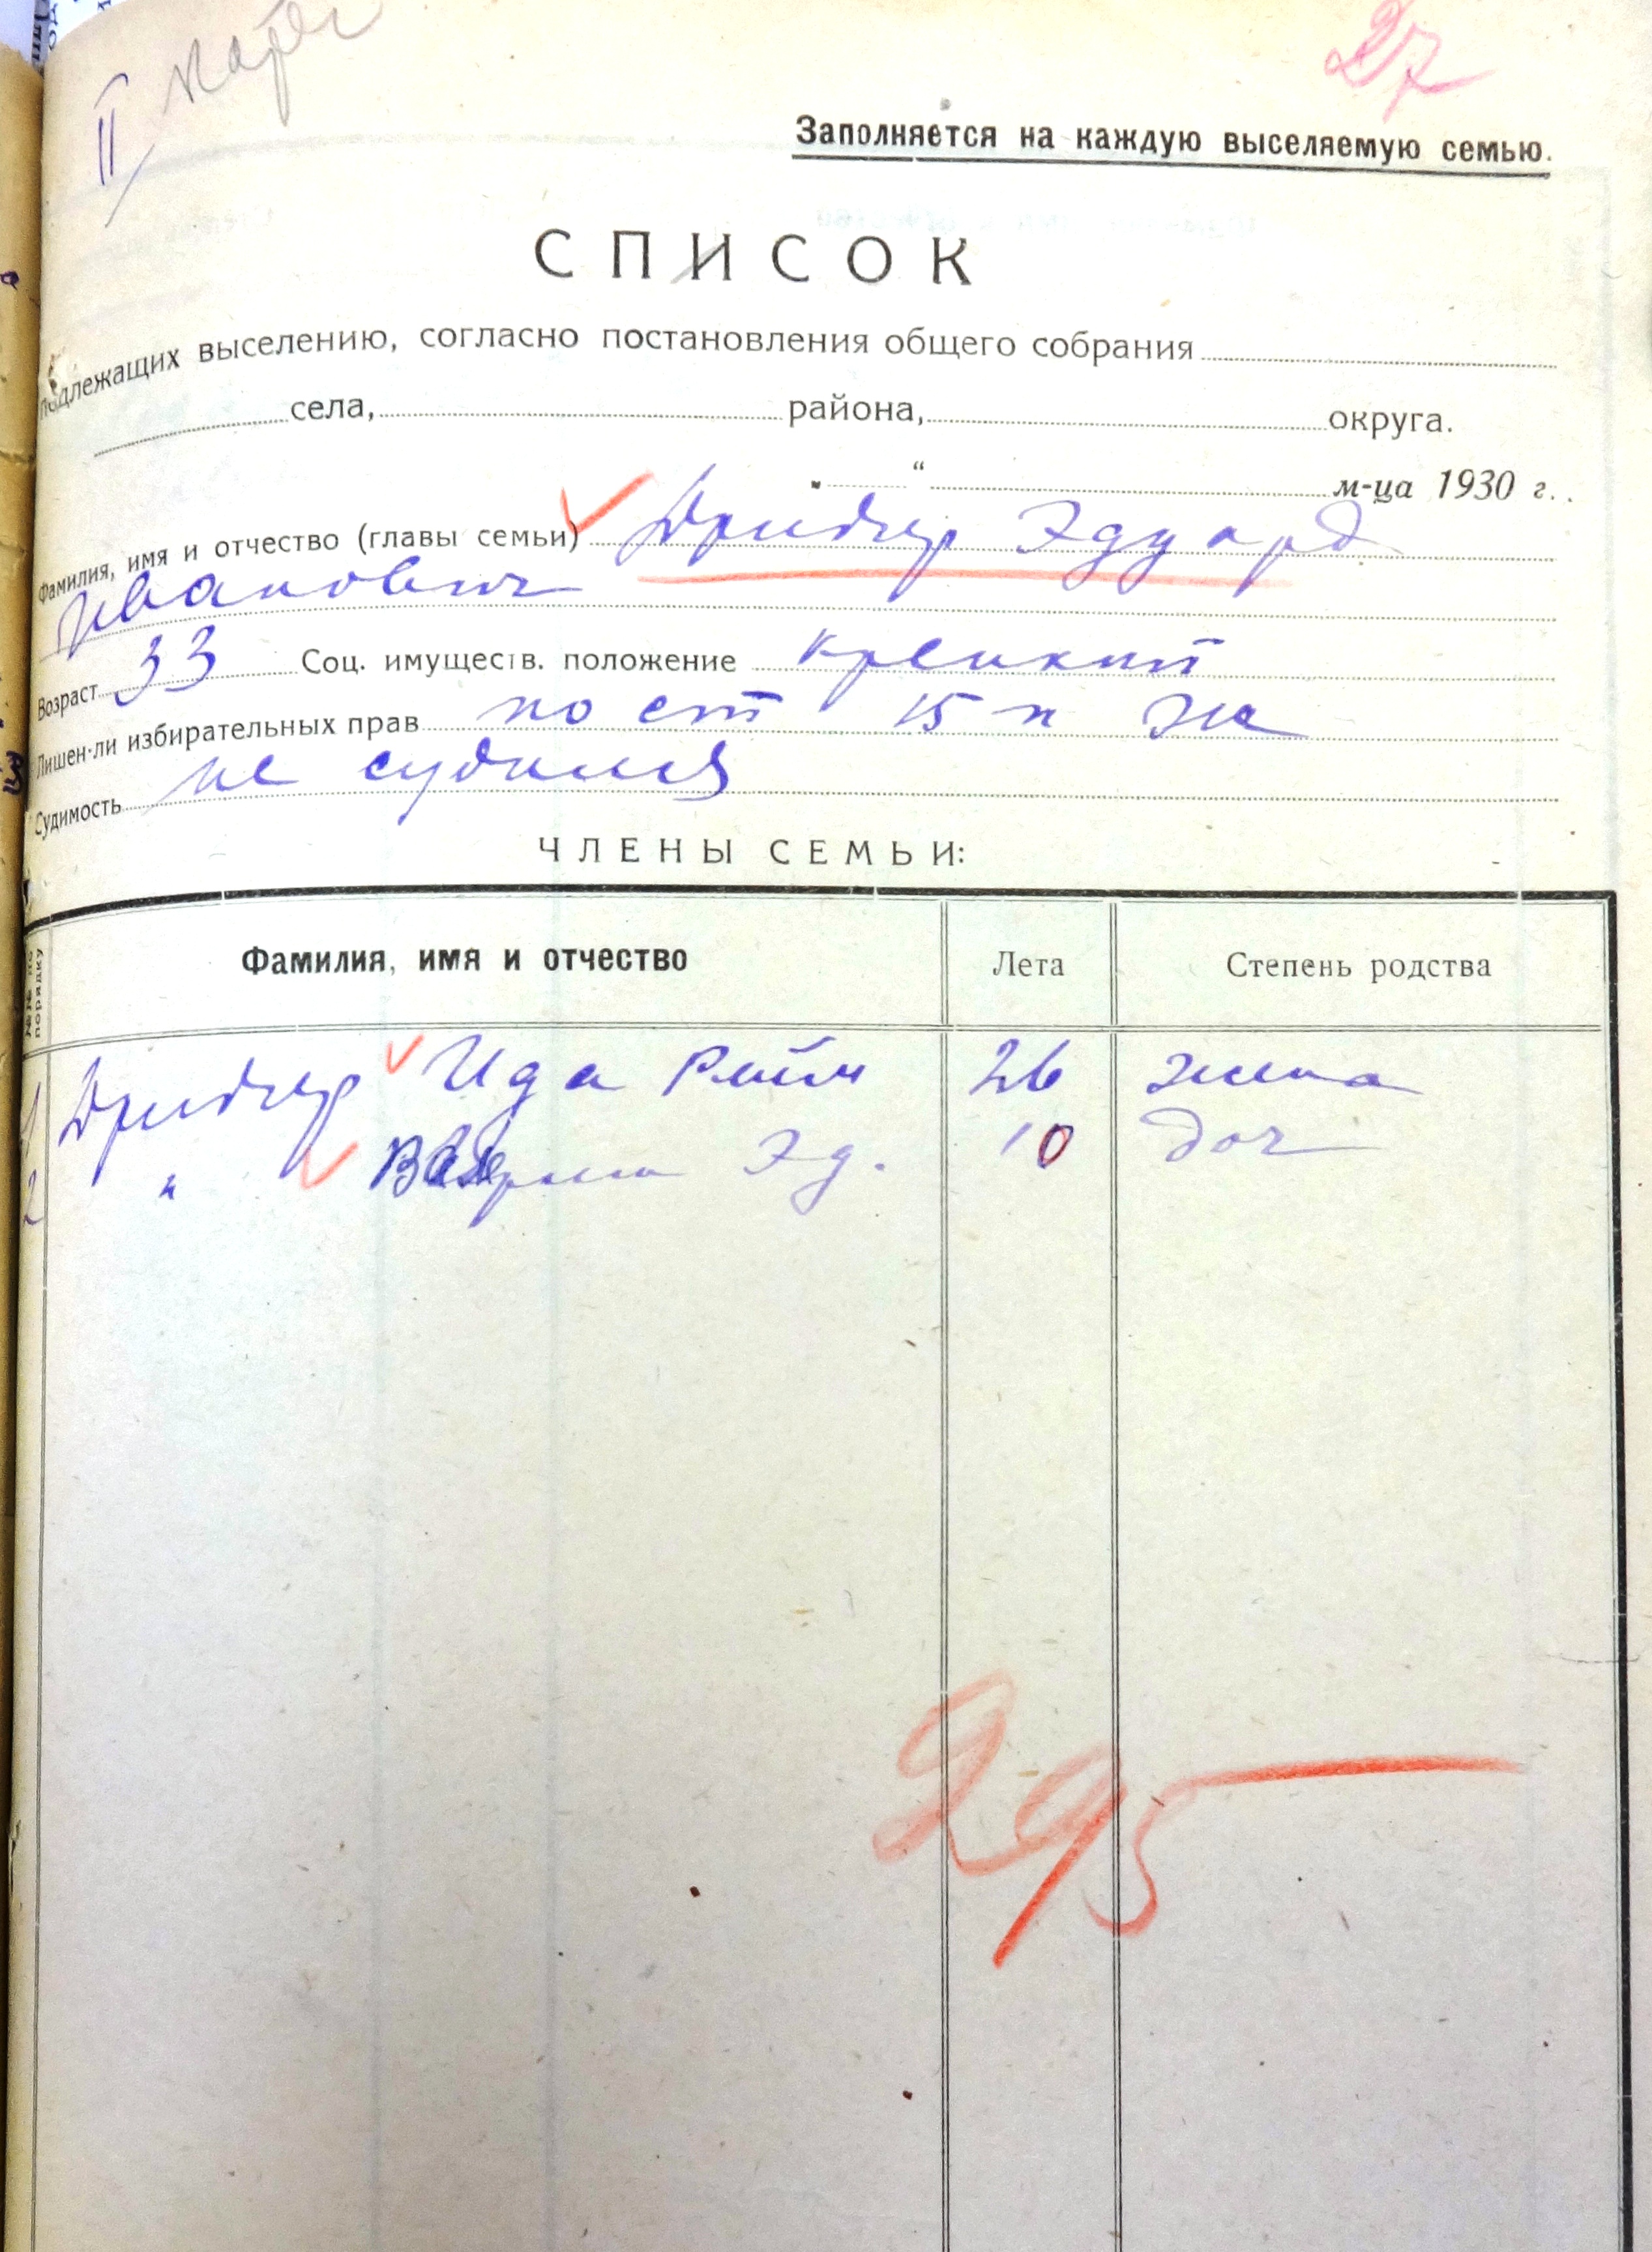 27
II
Заполняется на каждую выселяемую семью.
СПИСОК
подлежащих выселению, согласно постановления общего собрания
села, района, округа.
" м-ца 1930 г.
Фамилия, имя и отчество (главы семьи) Дридгер Эдуард
Иванович
Возраст 33 Соц. имуществ. положение крепкий
Лишен-ли избирательных прав по ст 15 п Ж
Судимость не судился
ЧЛЕНЫ СЕМЬИ:
№№ по порядку Фамилия, имя и отчество Лета Степень родства
1 Дридгер Ида 26 жена
2 " Эд. 10 доч
295